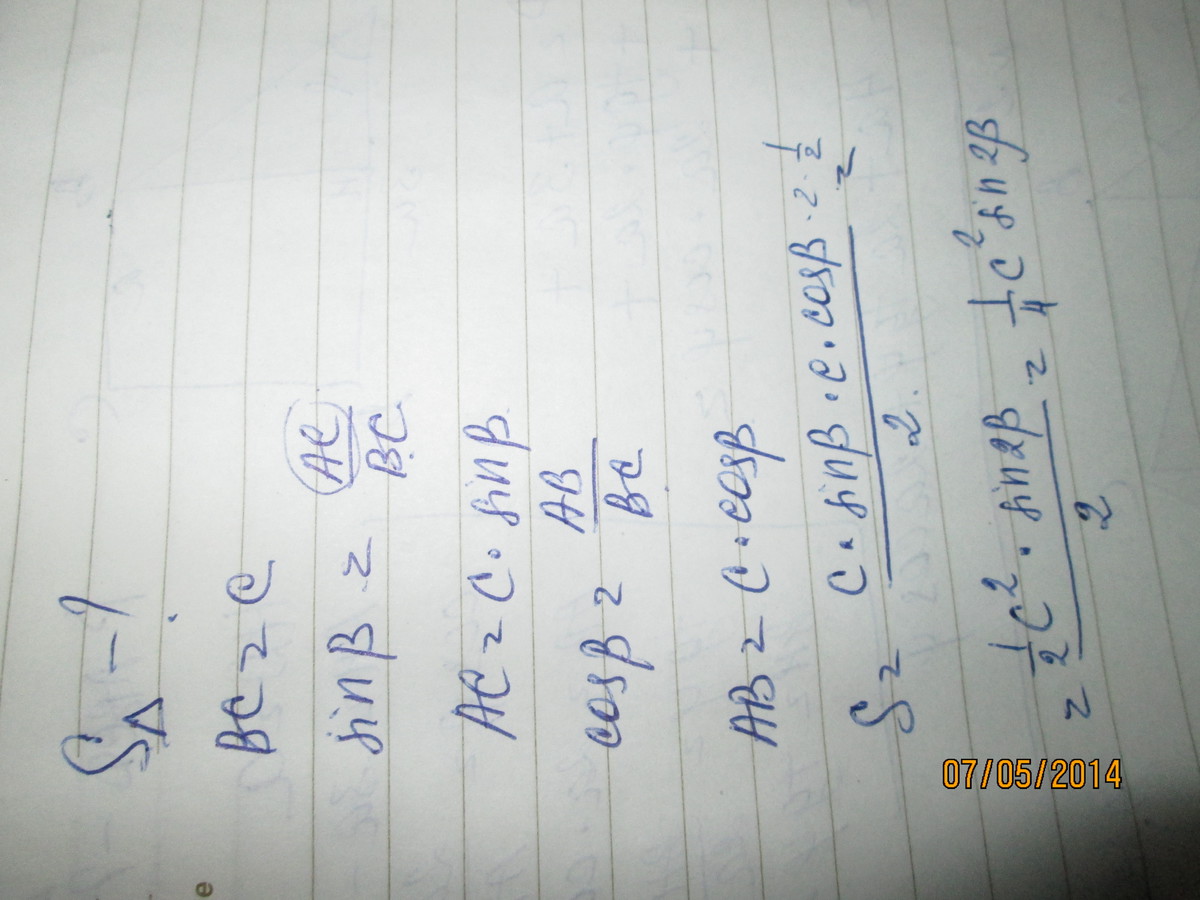 S△ - ?
BC = c
sin β = AC/BC
AC = c · sin β
cos β = AB/BC
AB = c · cos β
S = (c · sin β · c · cos β · 2 · 1/2)/2 =
= (1/2 c² · sin 2β)/2 = 1/4 c² sin 2β
07/05/2014
e